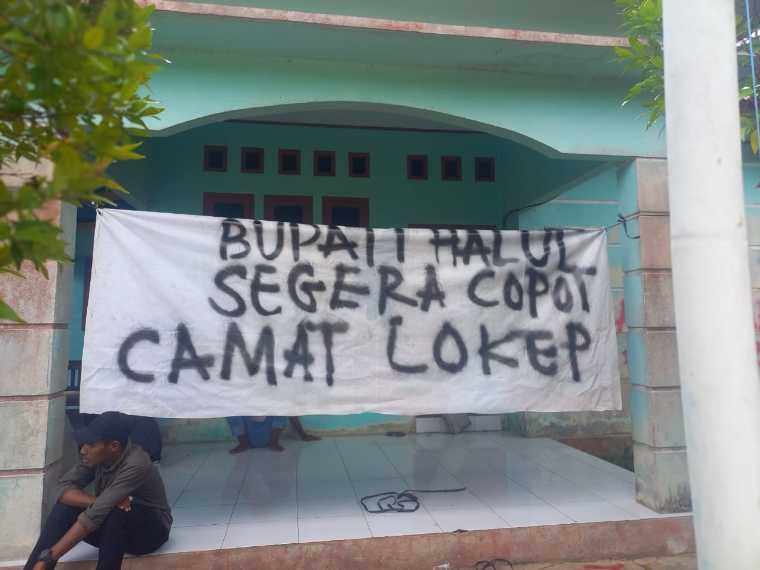 BUPATI HALUL
SEGERA COPOT
CAMAT LOKEP